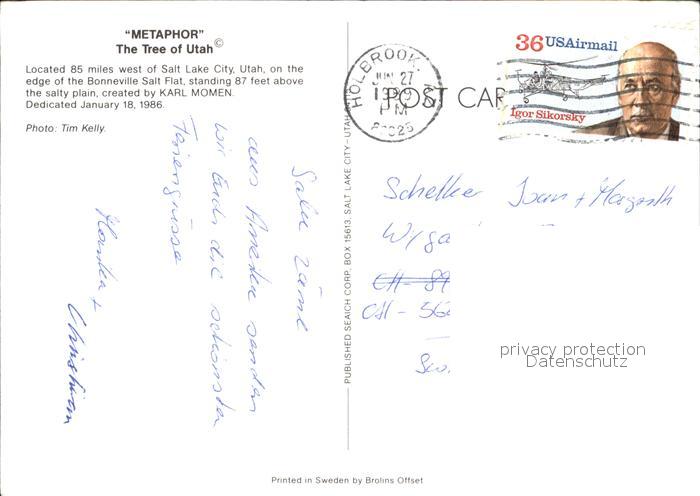 "METAPHOR"
The Tree of Utah©
Located 85 miles west of Salt Lake City, Utah, on the
edge of the Bonneville Salt Flat, standing 87 feet above
the salty plain, created by KARL MOMEN.
Dedicated January 18, 1986.
Photo: Tim Kelly.
Salü zäme
aus Amerika senden
wir Euch die schönsten
Feriengrüsse
+
Christian
PUBLISHED SEAICH CORP., BOX 15613, SALT LAKE CITY - UTAH
HOLBROOK
JUN 27
PM
86025
POST CAR
36 USAirmail
Igor Sikorsky
+
CH - 89
CH - 562
privacy protection
Datenschutz
Printed in Sweden by Brolins Offset